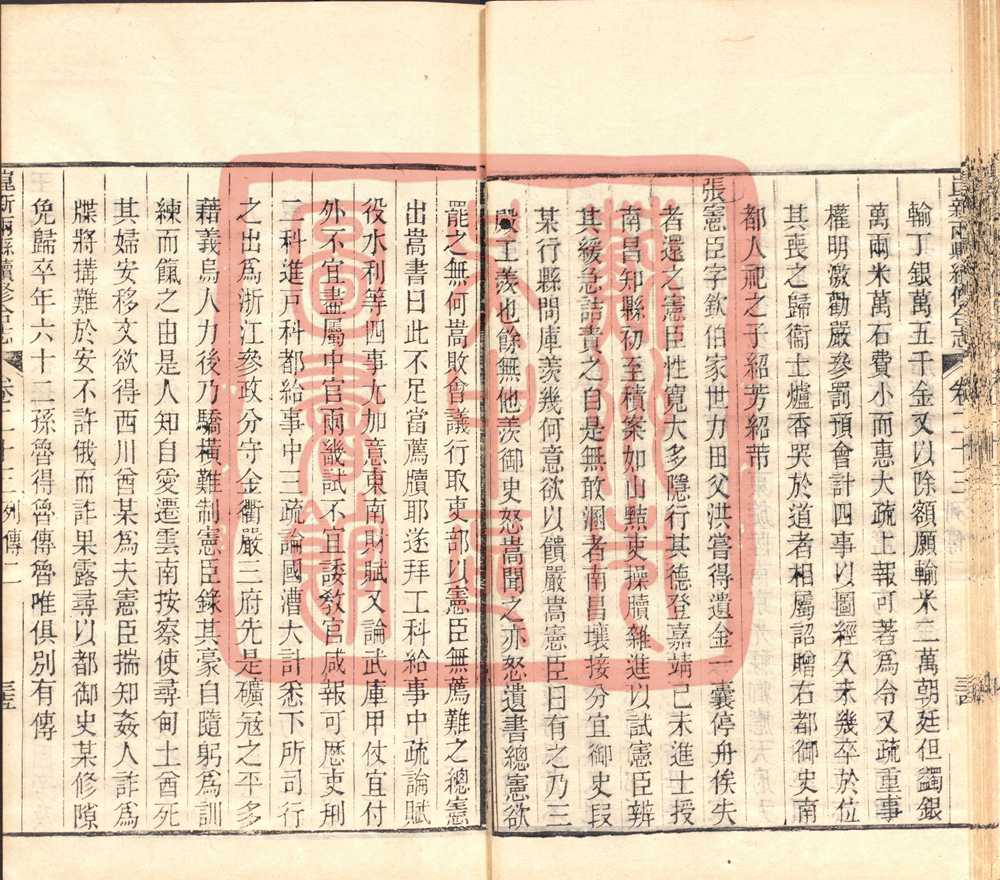 崑新兩縣續修合志 卷二十三 列傳二
輸丁銀萬五千金又以除額願輸米二萬朝廷但蠲銀
萬兩米萬石費小而惠大疏上報可著為令又疏重事
權明激勸嚴參罰預會計四事以圖經久未幾卒於位
其喪之歸衞士爐香哭於道者相屬詔贈右都御史南
都人祀之子紹芳紹芾
張憲臣字欽伯家世力田父洪嘗得遺金一囊停舟俟失
者還之憲臣性寬大多隱行其德登嘉靖己未進士授
南昌知縣初至積案如山黠吏操牘雜進以試憲臣辨
其緩急詰責之自是無敢溷者南昌壤接分宜御史段
某行縣問庫羨幾何意欲以饋嚴嵩憲臣曰有之乃三
殿工羨也餘無他羨御史怒嵩聞之亦怒遺書總憲欲
罷之無何嵩敗會議行取吏部以憲臣無薦難之總憲
出嵩書曰此不足當薦牘耶遂拜工科給事中疏論賦
役水利等四事尤加意東南財賦又論武庫甲仗宜付
外不宜盡屬中官兩畿試不宜諉敎官咸報可歴吏刑
二科進戸科都給事中三疏論國漕大計悉下所司行
之出爲浙江參政分守金衢嚴三府先是礦宼之平多
藉義烏人力後乃驕橫難制憲臣錄其豪自隨躬爲訓
練而餼之由是人知自愛遷雲南按察使尋甸土酋死
其婦安移文欲得西川酋某爲夫憲臣揣知姦人詐爲
牒將搆難於安不許俄而詐果露尋以都御史某修隙
免歸卒年六十二孫魯得魯傳魯唯俱別有傳
崑新兩縣續修合志 卷二十三 列傳二 三五